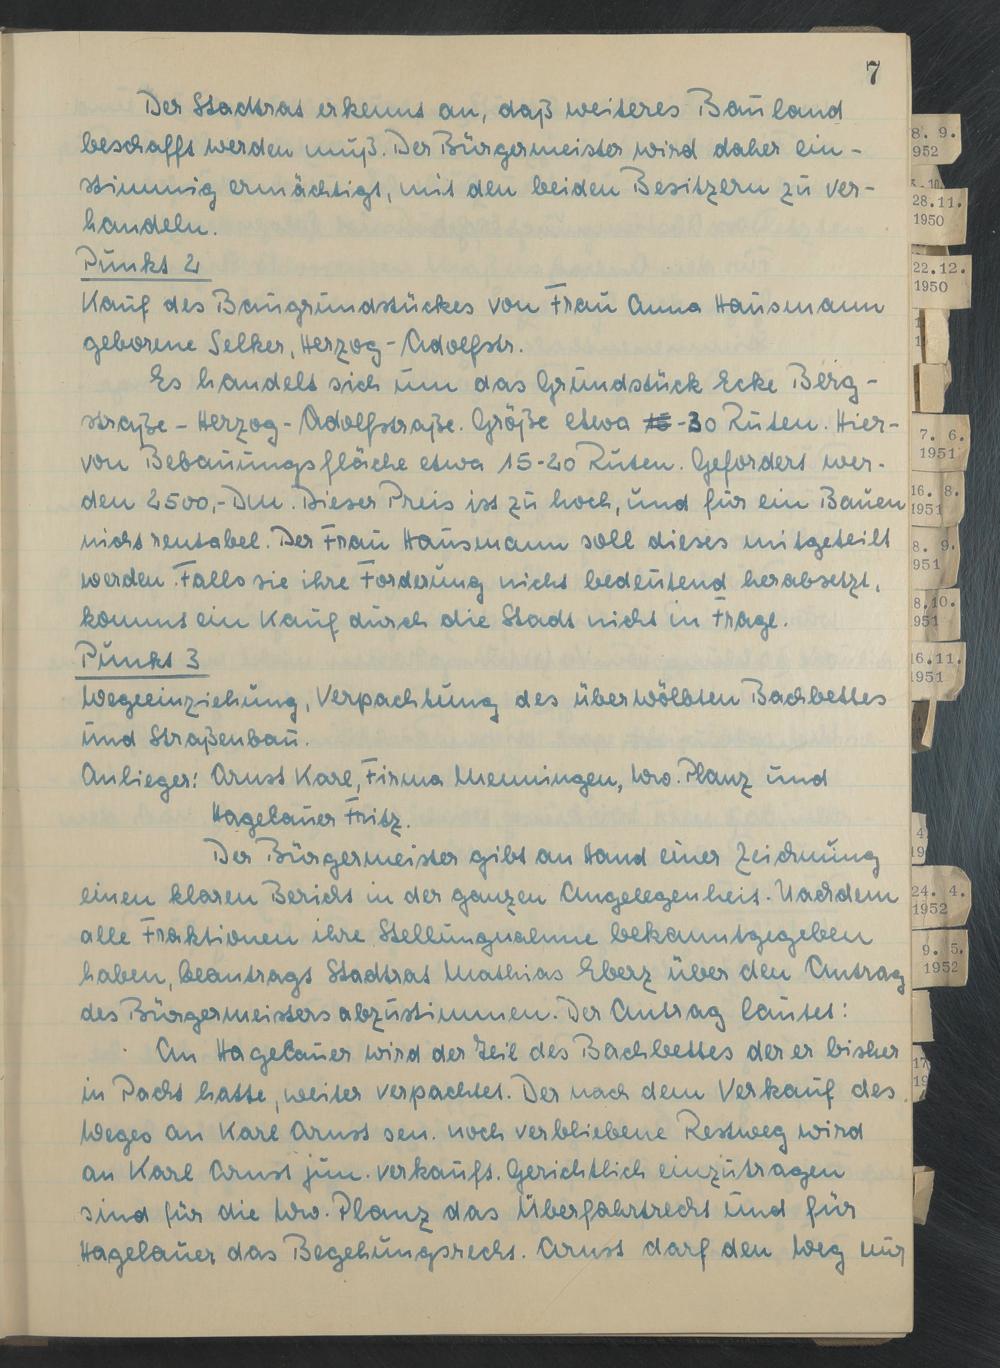 7
Der Stadtrat erkennt an, daß weiteres Bauland
beschafft werden muß. Der Bürgermeister wird daher ein-
stimmig ermächtigt, mit den beiden Besitzern zu ver-
handeln.
Punkt 2
Kauf des Baugrundstückes von Frau Anna Hausmann
geborene Selker, Herzog-Adolfstr.
Es handelt sich um das Grundstück Ecke Berg-
straße - Herzog-Adolfstraße. Größe etwa -30 Ruten. Hier-
von Bebauungsfläche etwa 15-20 Ruten. Gefordert wer-
den 2500,- DM. Dieser Preis ist zu hoch, und für ein Bauen
nicht rentabel. Der Frau Hausmann soll dieses mitgeteilt
werden. Falls sie ihre Forderung nicht bedeutend herabsetzt,
kommt ein Kauf durch die Stadt nicht in Frage.
Punkt 3
Wegeeinziehung, Verpachtung des überwölbten Bachbettes
und Straßenbau.
Anlieger: Arnst Karl, Firma Menningen, Ww. Planz und
Hagelauer Fritz.
Der Bürgermeister gibt an Hand einer Zeichnung
einen klaren Bericht in der ganzen Angelegenheit. Nachdem
alle Fraktionen ihre Stellungnahme bekanntgegeben
haben, beantragt Stadtrat Mathias Eberz über den Antrag
des Bürgermeisters abzustimmen. Der Antrag lautet:
An Hagelauer wird der Teil des Bachbettes der er bisher
in Pacht hatte, weiter verpachtet. Der nach dem Verkauf des
Weges an Karl Arnst sen. noch verbliebene Restweg wird
an Karl Arnst jun. verkauft. Gerichtlich einzutragen
sind für die Ww. Planz das Überfahrtrecht und für
Hagelauer das Begehungsrecht. Arnst darf den Weg nur
8. 9.
952
28.11.
1950
22.12.
1950
7. 6.
1951
16. 8.
1951
8. 9.
951
8.10.
951
16.11.
1951
24. 4.
1952
9. 5.
1952
17
19